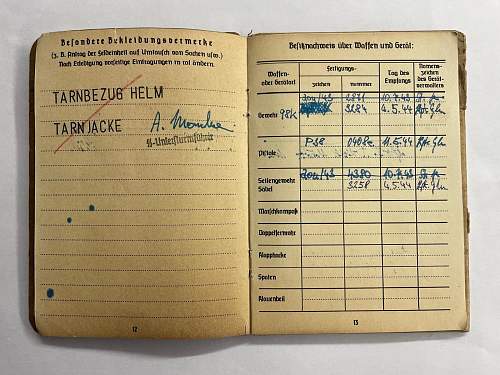 Besondere Bekleidungsvermerke
(z. B. Antrag der Feldeinheit auf Umtausch von Sachen usw.)
Nach Erledigung vorseitige Eintragungen in rot ändern.
TARNBEZUG HELM
TARNJACKE
SS-Untersturmführer
12
Besitznachweis über Waffen und Gerät:
Waffen- oder Gerätart
Fertigungs-
zeichen
nummer
Tag des Empfangs
Namens-zeichen des Gerät-verwalters
Gewehr 98k
10.7.43
3184
4.5.44
Pistole
11.5.44
Seitengewehr
4380
10.7.43
Säbel
3258
4.5.44
Marschkompaß
Doppelfernrohr
Klapphacke
Spaten
Klauenbeil
13